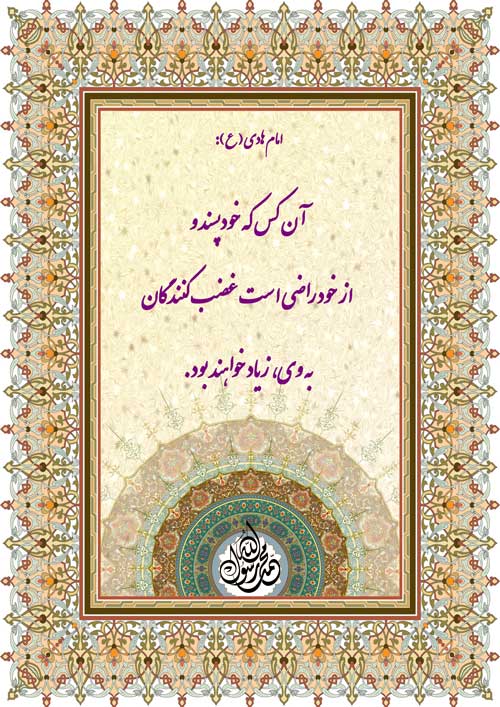 امام هادی (ع):
آن کس که خودپسند و
از خود راضی است غضب کنندگان
به وی، زیاد خواهند بود.
محمد رسول الله